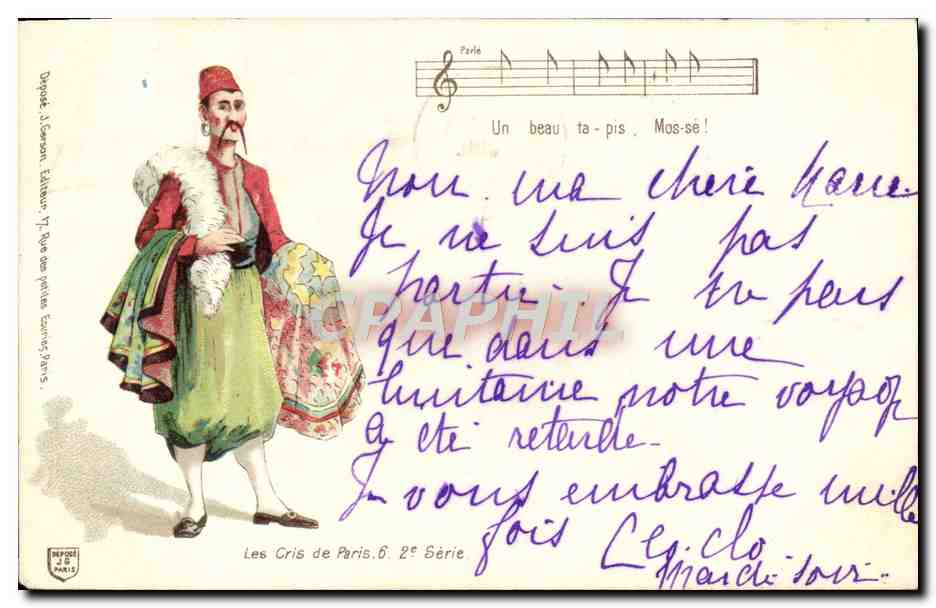 Parlé
Un beau ta-pis, Mos-sé!
Déposé, J. Gerson. Editeur, 17, Rue des petites Ecuries, Paris.
Non ma chère
Je ne suis pas
partie. Je ne pars
que dans une
huitaine notre voyage
a été retardé.
Je vous embrasse mille
fois
Mardi soir.
Les Cris de Paris. 6. 2e Série.
DÉPOSÉ
JG
PARIS
CPARPHIL